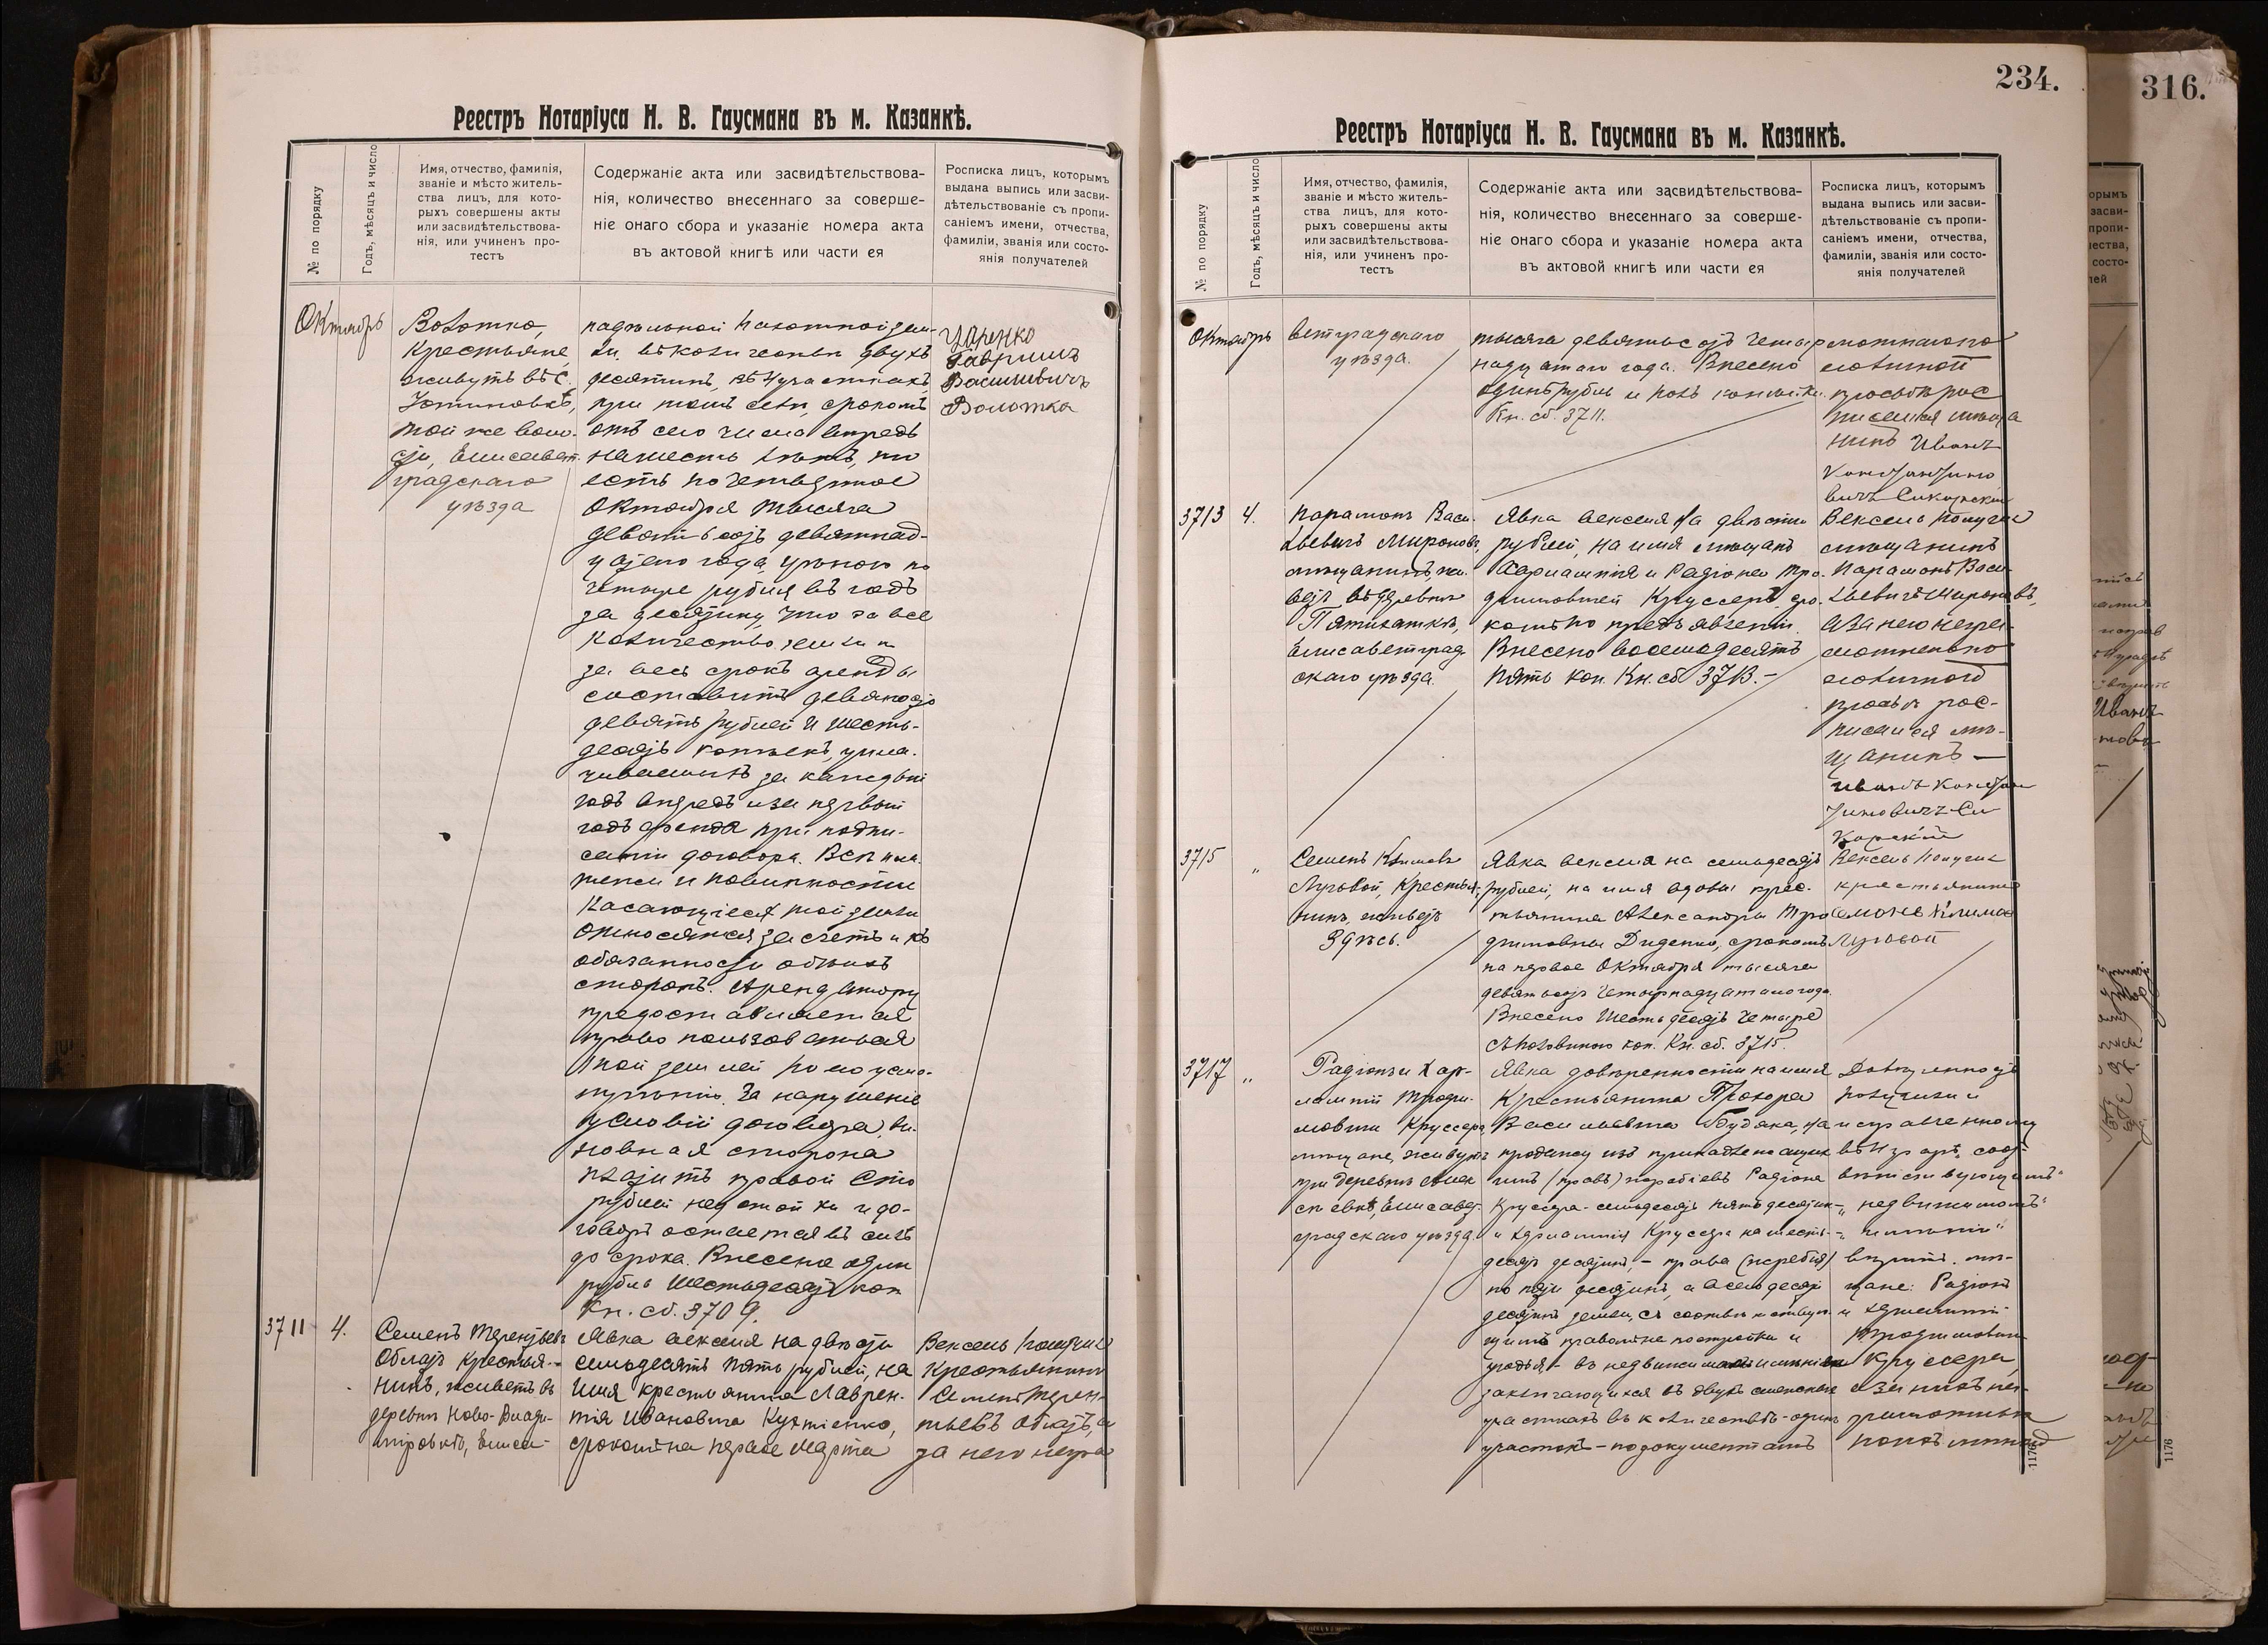 Реестръ Нотаріуса Н. В. Гаусмана въ м. Казанкѣ.
№ по порядку
Годъ, мѣсяцъ и число
Имя, отчество, фамилія,
званіе и мѣсто житель-
ства лицъ, для кото-
рыхъ совершены акты
или засвидѣтельствова-
нія, или учиненъ про-
тестъ
Содержаніе акта или засвидѣтельствова-
нія, количество внесеннаго за соверше-
ніе онаго сбора и указаніе номера акта
въ актовой книгѣ или части ея
Росписка лицъ, которымъ
выдана выпись или засви-
дѣтельствованіе съ пропи-
саніемъ имени, отчества,
фамиліи, званія или состо-
янія получателей
Октябрь
Волотко,
Крестьяне,
живутъ въ с.
той же воло-
сти, Елисавет-
градскаго
уѣзда
надѣльной пахотной зем-
ли въ количествѣ двухъ
десятинъ, въ участкахъ,
при томъ селѣ, срокомъ
отъ сего числа впредь
на шесть лѣтъ, то
есть по четвертое
Октября тысяча
девятьсотъ девятнад-
цатаго года, цѣною по
четыре рубля въ годъ
за десятину, что за все
количество земли и
за весь срокъ аренды
составитъ девяносто
девять рублей и шесть-
десятъ копѣекъ, упла-
чиваемыхъ за каждый
годъ впредь и за первый
годъ аренда при подпи-
саніи договора. Всѣ пла-
тежи и повинности
касающіеся той земли
относятся за счетъ и къ
обязанности обѣихъ
сторонъ. Арендатору
предоставляется
право пользоваться
той землей по его усмо-
трѣнію. За нарушеніе
условій договора, ви-
новная сторона
платитъ правой сто
рублей неустойки и до-
говоръ остается въ силѣ
до срока. Внесено одинъ
рубль шестьдесятъ коп
Кн. сб. 3709.
Гавриилъ
Васильевичъ
Волотка
3711
4.
Семенъ Терентьевъ
Облатъ крестья-
нинъ, живетъ въ
деревнѣ Ново-Влади-
міровкѣ, Елиса-
Явка векселя на двѣсти
семьдесятъ пять рублей, на
имя крестьянина Лаврен-
тія Ивановича
срокомъ на первое Марта
Вексель получилъ
Крестьянинъ
Семенъ Терен-
тьевъ Облатъ, а
за него негра
234.
Реестръ Нотаріуса Н. В. Гаусмана въ м. Казанкѣ.
№ по порядку
Годъ, мѣсяцъ и число
Имя, отчество, фамилія,
званіе и мѣсто житель-
ства лицъ, для кото-
рыхъ совершены акты
или засвидѣтельствова-
нія, или учиненъ про-
тестъ
Содержаніе акта или засвидѣтельствова-
нія, количество внесеннаго за соверше-
ніе онаго сбора и указаніе номера акта
въ актовой книгѣ или части ея
Росписка лицъ, которымъ
выдана выпись или засви-
дѣтельствованіе съ пропи-
саніемъ имени, отчества,
фамиліи, званія или состо-
янія получателей
Октябрь
ветградскаго
уѣзда.
тысяча девятьсотъ четыр
надцатаго года. Внесено
одинъ рубль и копѣйки.
Кн. сб. 3711.
мотнаго по
личной
просьбѣ рос
писался мѣща
нинъ Иванъ
Константино
вичъ Сикорскій
3713
4.
Парамонъ Васи-
льевичъ Мироновъ,
мѣщанинъ жи-
ветъ въ деревнѣ
Пятихаткѣ,
Елисаветград
скаго уѣзда.
Явка векселя на двѣсти
рублей, на имя мѣщанъ
Харлампія и Радіона Тро-
фимовичей Круссеръ, сро-
комъ по предъявленіи.
Внесено восемьдесятъ
пять коп. Кн. сб. 3713.-
Вексель получилъ
мѣщанинъ
Парамонъ Васи-
льевичъ Мироновъ,
а за него негра-
мотнаго по
личной
просьбѣ рос-
писался мѣ-
щанинъ —
Иванъ Констан
тиновичъ Си
корскій
3715
"
Семенъ Климовъ
Луговой, Крестья-
нинъ, живетъ
здѣсь.
Явка векселя на семьдесятъ
рублей, на имя вдовы крес-
тьянина Александры Тро
фимовны Диденко, срокомъ
на первое Октября тысяча
девятьсотъ четырнадцатаго года.
Внесено шестьдесятъ четыре
съ половиною коп. Кн. сб. 3715.
Вексель получилъ
крестьянинъ
Климовъ
Луговой
3717
"
Радіонъ и Хар-
лампій Трофи-
мовичи Круссеръ,
мѣщане, живутъ
при деревнѣ Алек
сѣевкѣ, Елисавет-
градскаго уѣзда.
Явка довѣренности на имя
Крестьянина Прохора
Васильевича Будяка, на
продажу изъ принадлежащихъ
имъ (правъ) жеребіевъ Радіона
Круссера - семьдесятъ пять десятин-
и Харлампія Круссера на шесть-
десятъ десятинъ, - права (жеребія)
десятинъ земли, съ соотвѣтствую-
щимъ правомъ на постройки и
угодья - въ недвижимомъ имѣніи
заключающихся въ двухъ смежныхъ
участкахъ въ количествѣ - одинъ
участокъ - по документамъ
Довѣренность
получили и
исправленному
вѣрить. мѣ-
щане: Радіонъ
и Харлампій
Трофимовичи
Круссеръ,
а за нихъ не-
грамотныхъ
по ихъ личной
1176
316.
1176